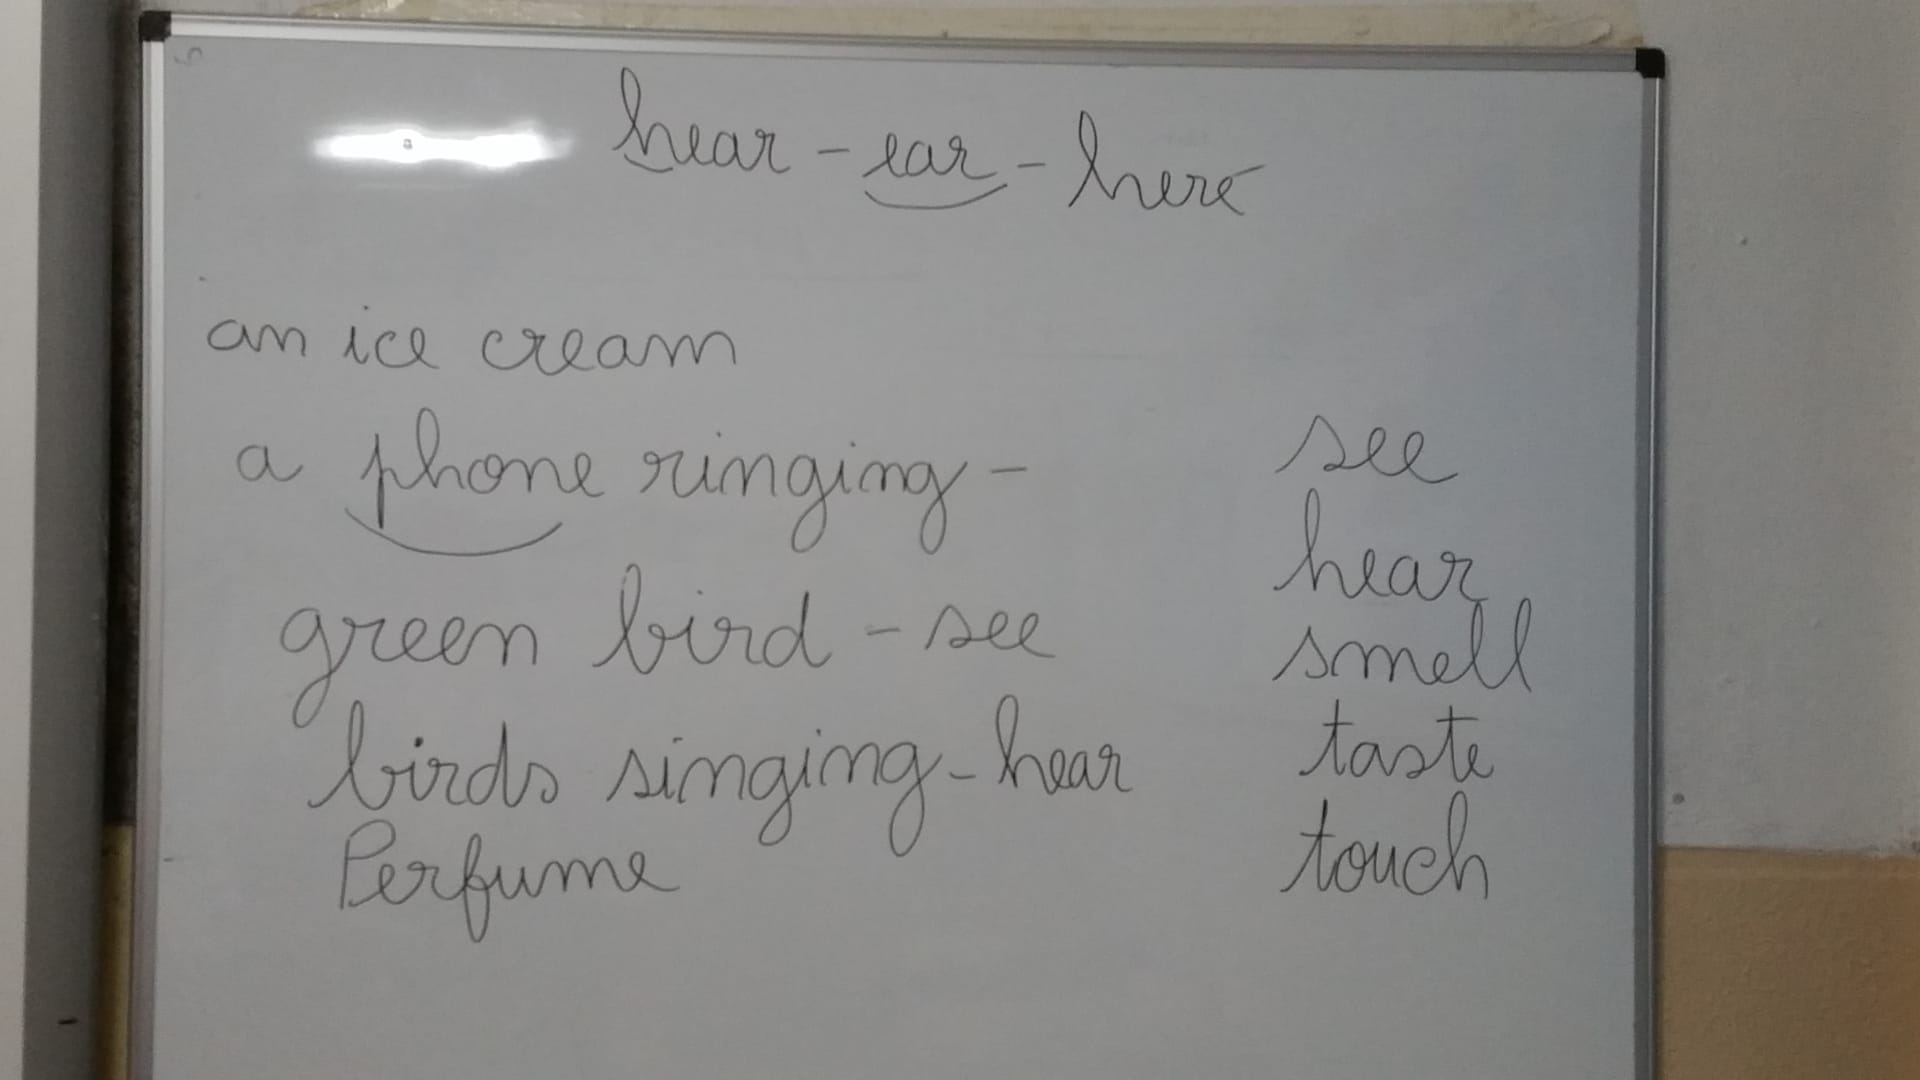 hear - ear - here
an ice cream
a phone ringing -
green bird - see
birds singing - hear
Perfume
see
hear
smell
taste
touch